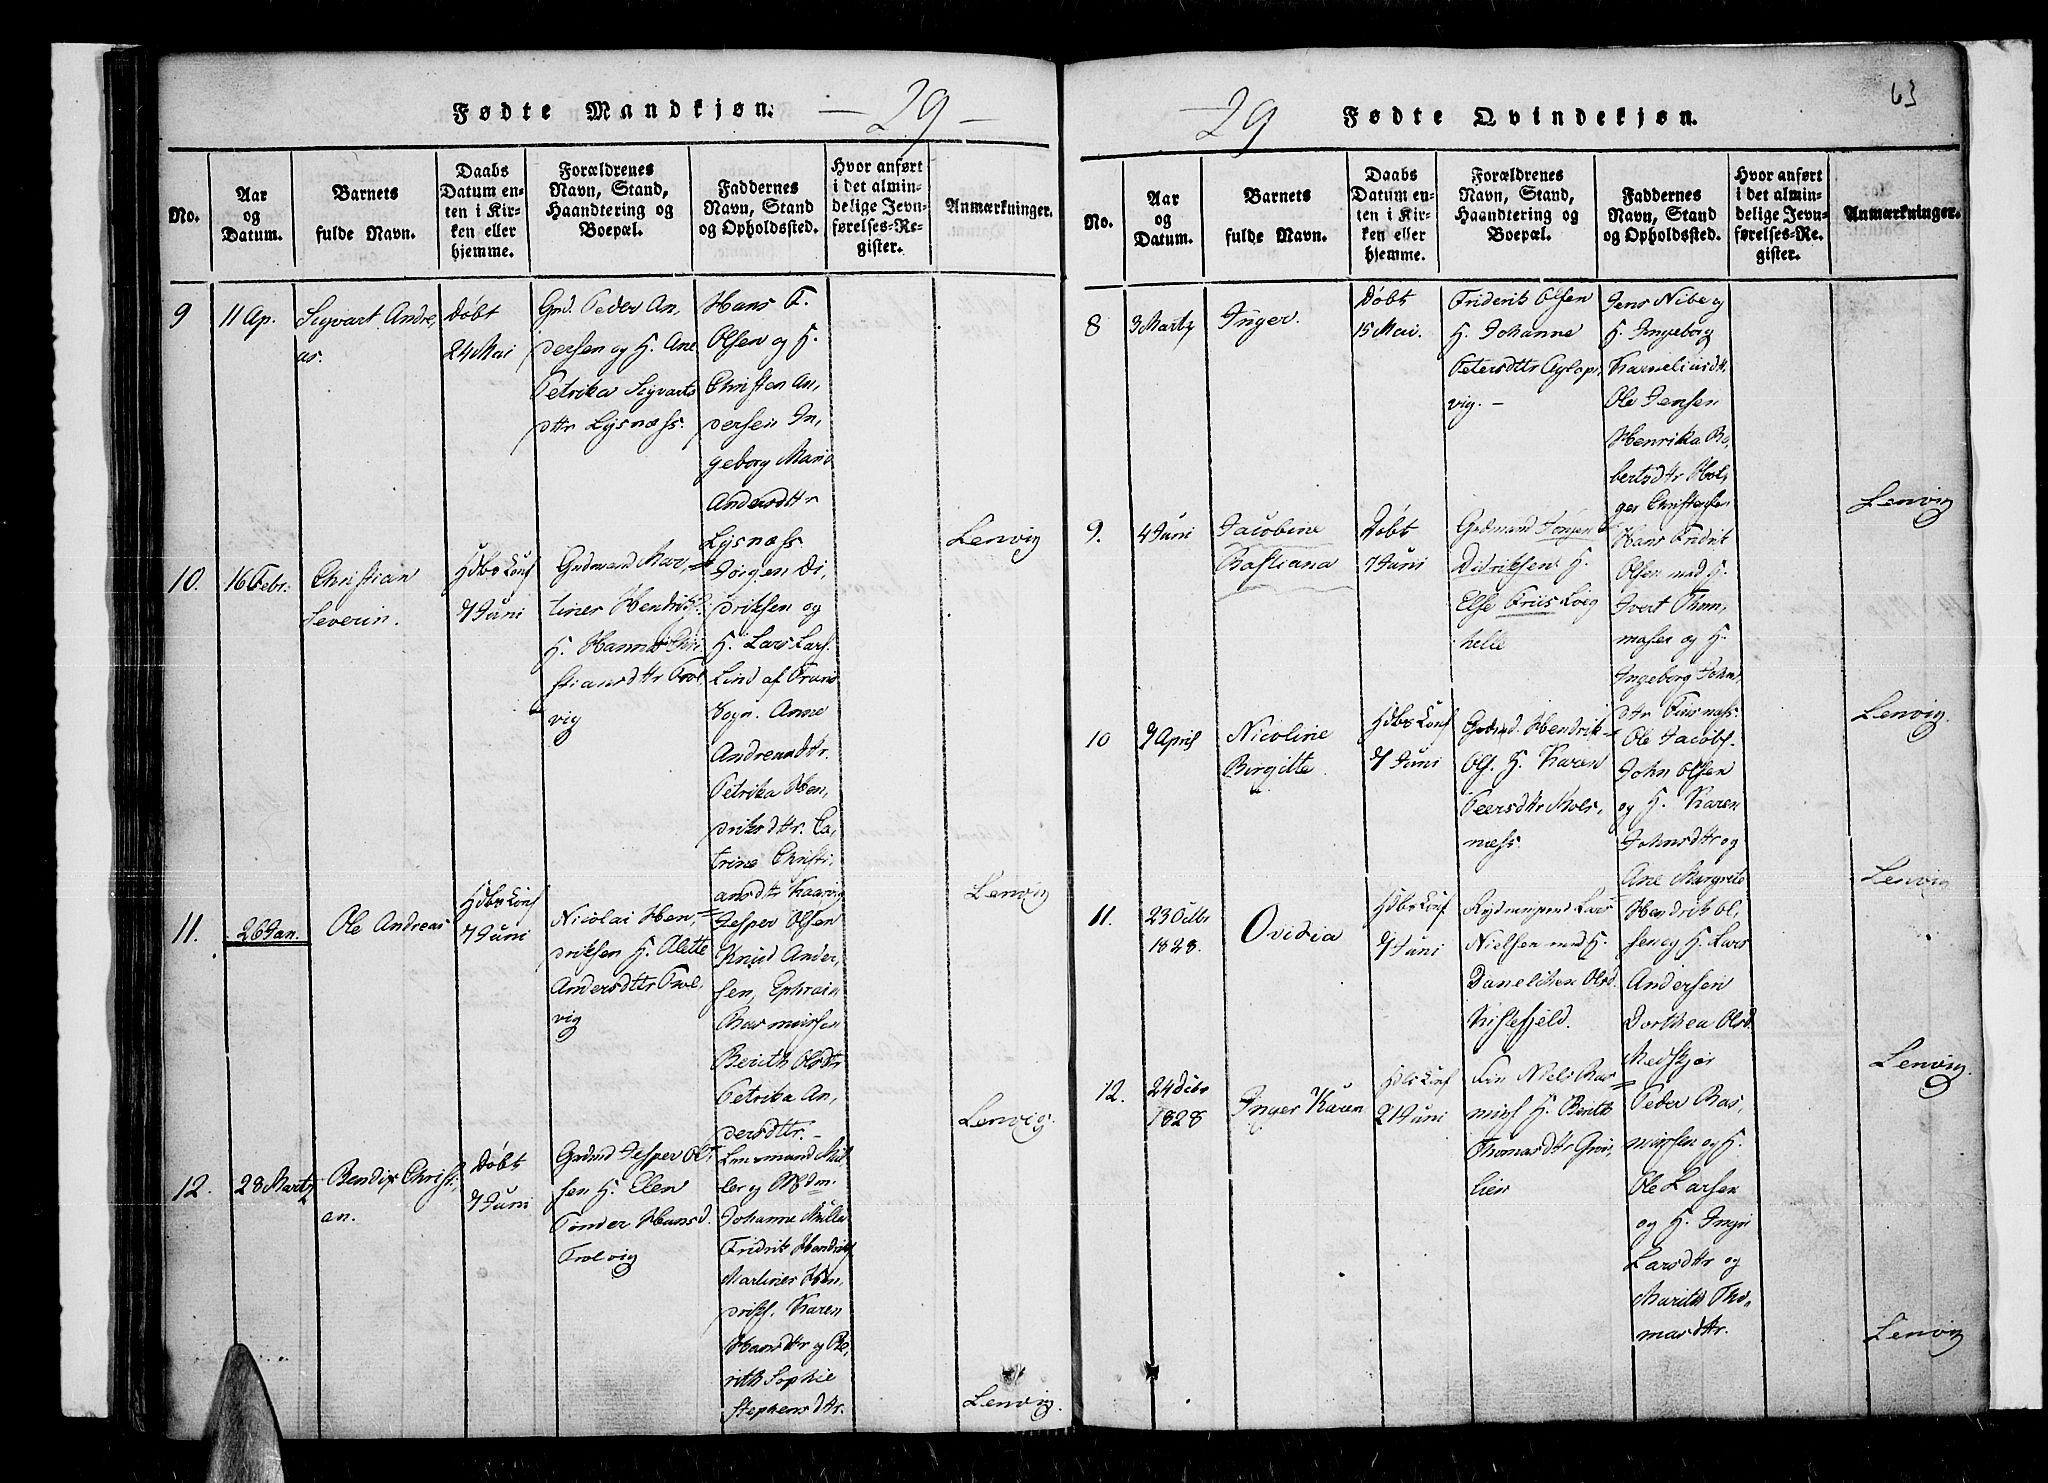 63
Fødte Mandkjøn. — 29 —
No.
Aar
og
Datum.
Barnets
fulde Navn.
Daabs
Datum en-
ten i Kir-
ken eller
hjemme.
Forældrenes
Navn, Stand,
Haandtering og
Boepæl.
Faddernes
Navn, Stand
og Opholdssted.
Hvor anført
i det almin-
delige Jevn-
førelses-Re-
gister.
Anmærkninger.
9
11 Ap.
Sigvart Andre,
as.
Døbt
24 Mai
Gmd. Peder An,
dersen og H. Ane
Petrika Sigvarts
dttr Lysnæss.
Hans F.
Olsen og H.
Christen An,
dersen In,
geborg Maria
Andersdttr
Lysnæss
Lenvig
10.
16 Febr.
Christian
Severin.
Hdbs Conf
7 Juni
Gudmand Mar,
tines Hendriks.
H. Hanna Chri
stiansdttr Trol,
vig
Jörgen Di,
driksen og
H. Lars Lars.
Lind af Tranö
Sogn. Anne
Andreasdttr.
Petrika Hen,
driksdttr. Ca,
trine Christi,
ansdttr Kaarvig
Lenvig
11.
26 Jan.
Ole Andreas
Hdbs Conf
7 Juni
Nicolai Hen,
driksen H. Alette
Andersdttr Trol,
vig
Jesper Olsen
Knud Ander,
sen, Ephraim
Rasmussen
Berith Olsdttr
Petrika An,
dersdttr.
Lenvig.
12.
28 Martz
Bendix Christi,
an.
Døbt
7 Juni
Gudmd Jesper Ol
sen H. Elen
Tönder Hansd.
Trolvig
Lensmand Mül
ler og Mdm.
Johanne Müller
Fridrik Hendriks
Martines Hen,
driks. Karen
Hansdttr og Be,
rith Sophie
Stephensdttr.
Lenvig.
29 Fødte Qvindekjøn.
No.
Aar
og
Datum.
Barnets
fulde Navn.
Daabs
Datum en-
ten i Kir-
ken eller
hjemme.
Forældrenes
Navn, Stand,
Haandtering og
Boepæl.
Faddernes
Navn, Stand
og Opholdssted.
Hvor anført
i det almin-
delige Jevn-
førelses-Re-
gister.
Anmærkninger.
8
3 Martz
Inger.
Døbt
15 Mai.
Friderik Olsen
H. Johanne
Petersdttr Aglap,
vig. —
Jens Nibe og
H. Ingeborg
Karneliusdt.
Ole Jensen
Henrika Ro,
bertsdttr Hol,
ger Christensen
Lenvig
9.
4 Juni
Jacobine
Bastiana
Döbt
7 Juni
Gudmand Jörgen
Didriksen H.
Else Friis Løg
helle
Hans Fridrik
Olsen med H.
Ivert Thom,
masen og H.
Ingeborg Johns,
dttr Finnæss.
Lenvig.
10
7 April
Nicoline
Birgitte.
Hdbs Conf
7 Juni
Gudmd. Hendrik
Ols. H. Karen
Peersdttr Kols
næss
Ole Jacobs.
John Olsen
og H. Karen
Johnsdttr og
Ane Margrete
Lenvig
11.
23 Octbr
1828.
Ovidia
Hdbs Conf
7 Juni
Lars
Nielsen med H.
Danelitken Olsd.
Kislefjeld.
Hendrik Ol,
sen og H. Lars
Andersen
Dorthea Olsd.
Medskjær
Lenvig.
12.
24 Decbr
1828
Inger Karen
Hdbs Conf
21 Juni
Fin Niels Ras
mus H. Berith
Thomasdttr
lien
Peder Ras,
mussen og H.
Ole Larsen
og H. Ingri
Larsdttr og
Marith Tho,
masdttr.
Lenvig